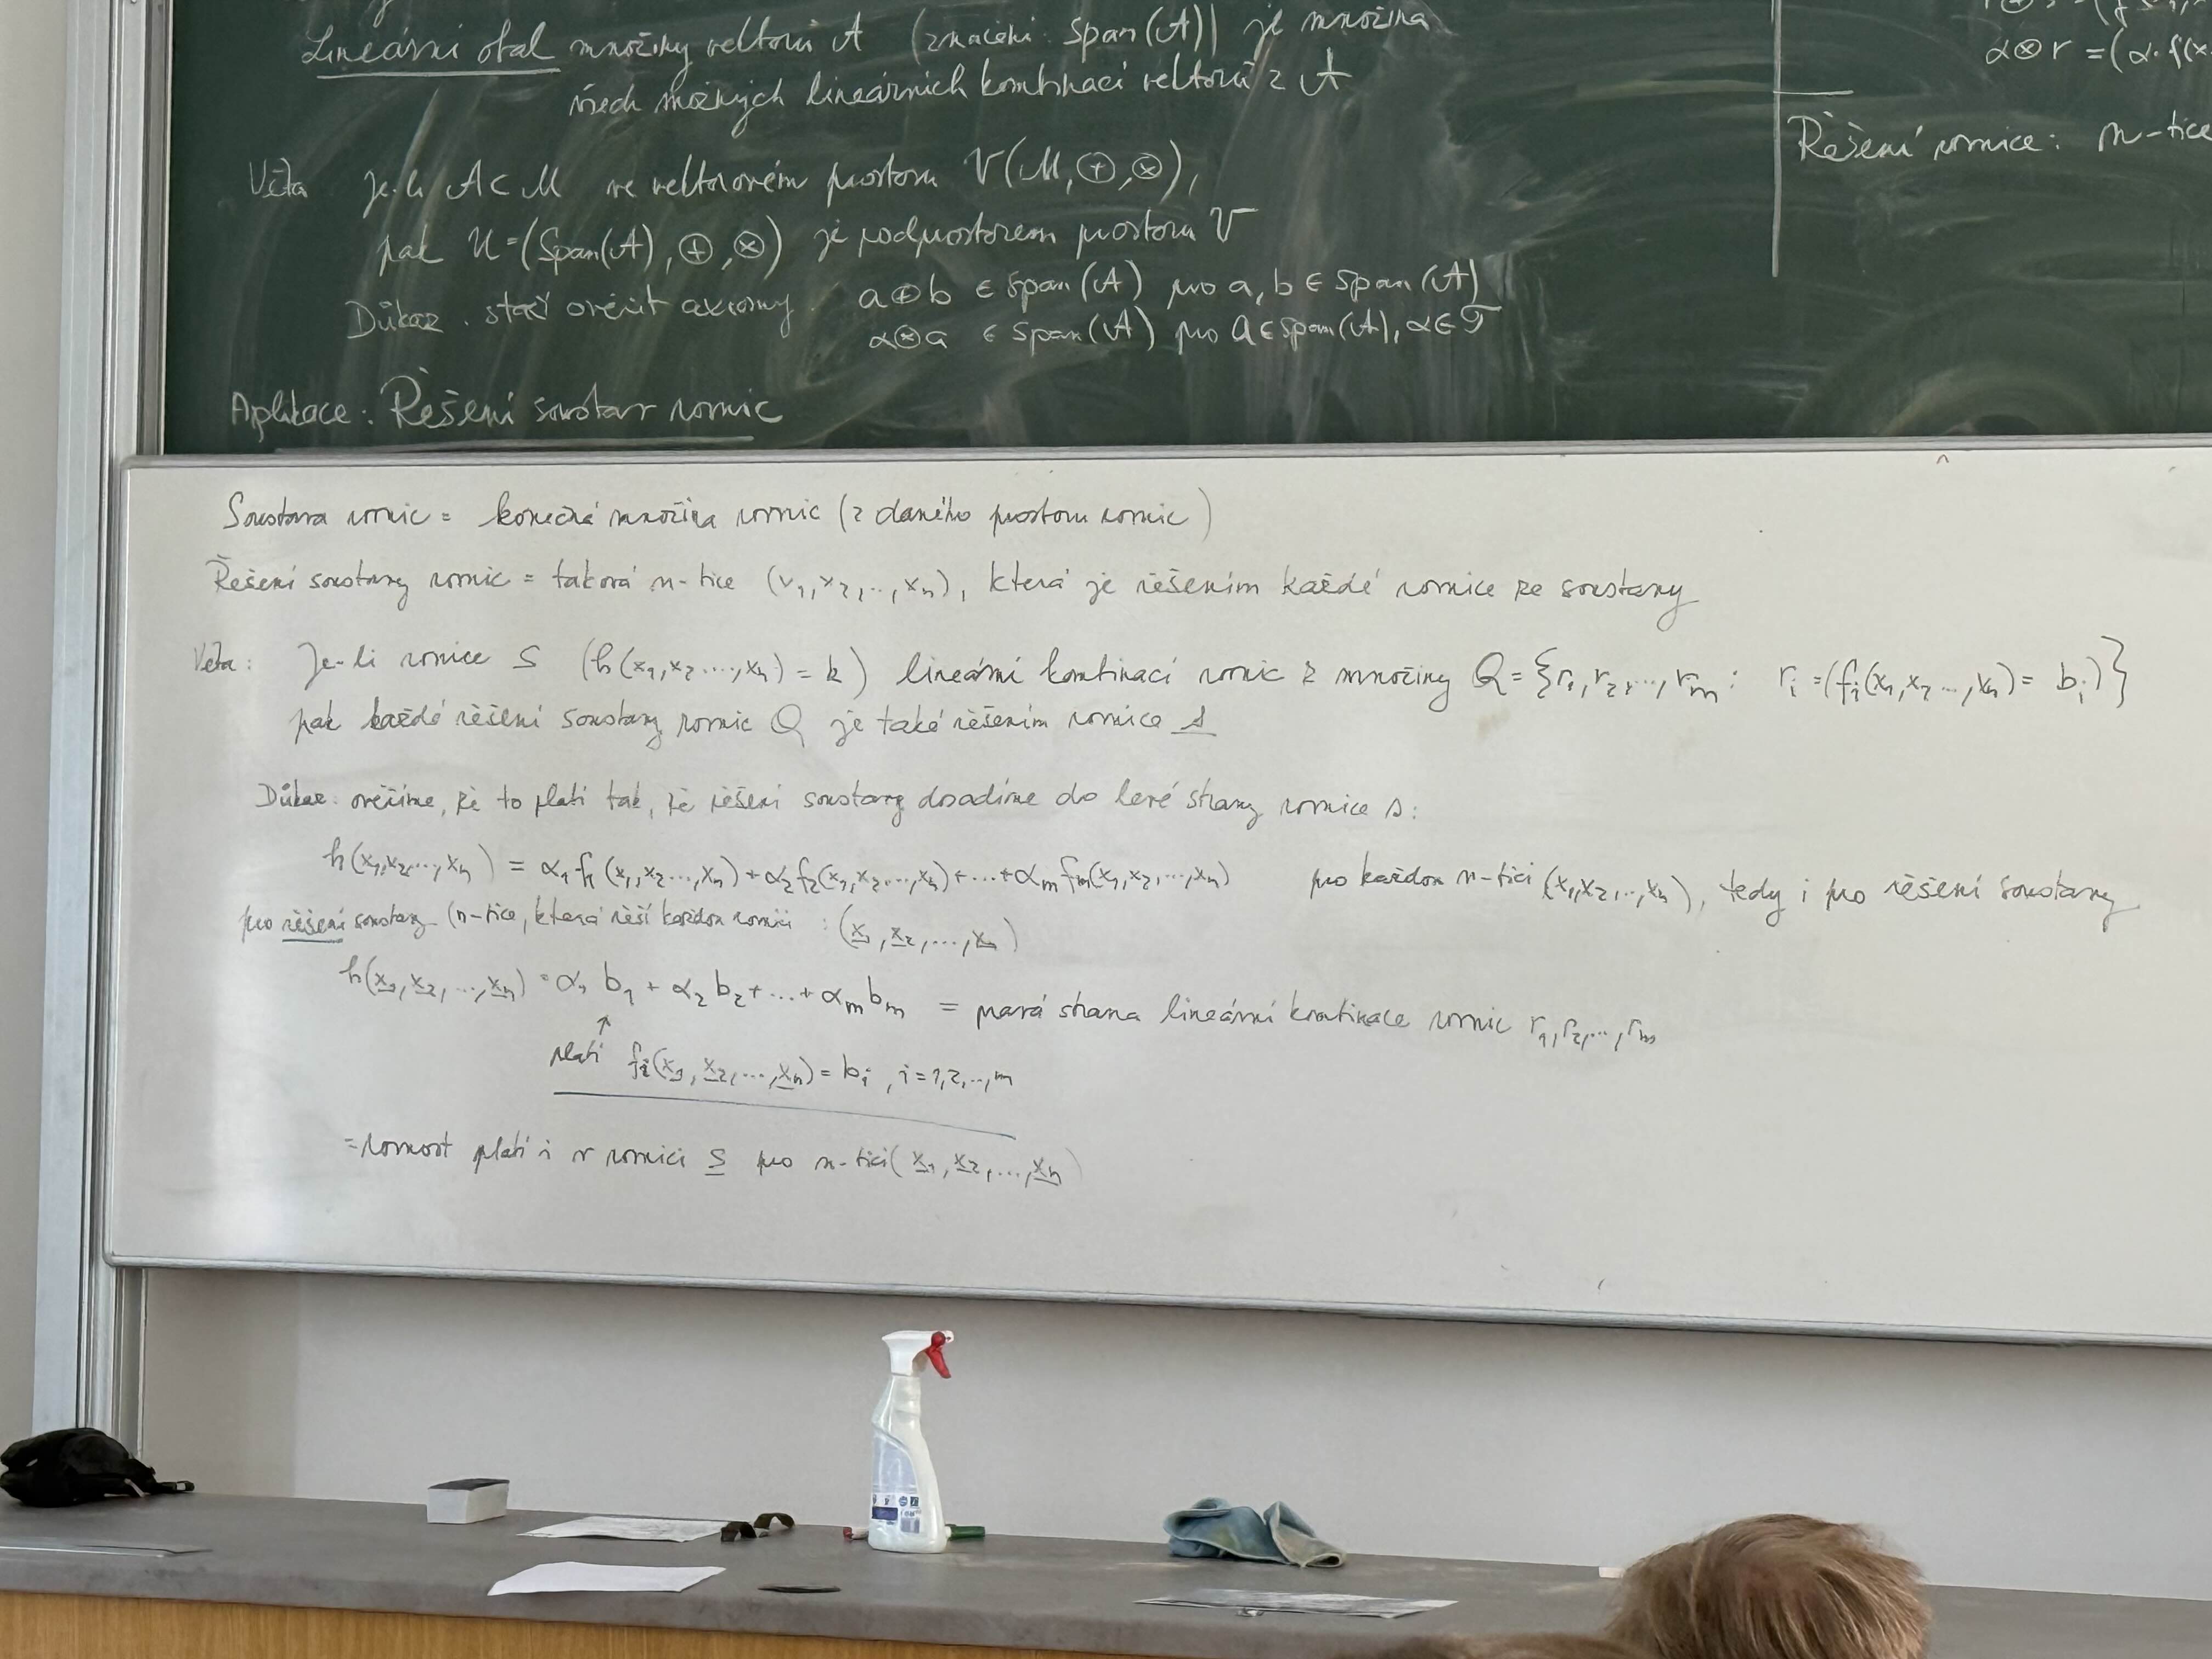 Lineární obal množiny vektorů A (značení: Span(A)) je množina
všech možných lineárních kombinací vektorů z A
Věta Je-li A⊂M ve vektorovém prostoru V(M,⊕,⊗),
pak U=(Span(A),⊕,⊗) je podprostorem prostoru V
Důkaz. stačí ověřit axiomy. a⊕b ∈ Span(A) pro a,b ∈ Span(A)
α⊗a ∈ Span(A) pro a∈Span(A), α∈T
Aplikace: Řešení soustav rovnic
α⊗r =(α·f(x
Řešení rovnice: n-tice
Soustava rovnic = konečná množina rovnic (z daného prostoru rovnic)
Řešení soustavy rovnic = taková n-tice (x₁,x₂,..,xₙ), která je řešením každé rovnice ze soustavy
Věta: Je-li rovnice S (h(x₁,x₂...,xₙ)=k) lineární kombinací rovnic z množiny Q={r₁,r₂,...,rₘ: rᵢ=(fᵢ(x₁,x₂...,xₙ)=bᵢ)}
pak každé řešení soustavy rovnic Q je také řešením rovnice s
Důkaz: ověříme, že to platí tak, že řešení soustavy dosadíme do levé strany rovnice s:
h(x₁,x₂,...,xₙ) = α₁f₁(x₁,x₂...,xₙ)+α₂f₂(x₁,x₂...,xₙ)+...+αₘfₘ(x₁,x₂,...,xₙ) pro každou n-tici (x₁,x₂,..,xₙ), tedy i pro řešení soustavy
pro řešení soustavy (n-tice, která řeší každou rovnici : (x₁,x₂,...,xₙ)
h(x₁,x₂,...,xₙ) = α₁b₁+α₂b₂+...+αₘbₘ = pravá strana lineární kombinace rovnic r₁,r₂,...,rₘ
↑
platí fᵢ(x₁,x₂,...,xₙ)=bᵢ, i=1,2,..,m
=rovnost platí i v rovnici S pro n-tici(x₁,x₂,...,xₙ)